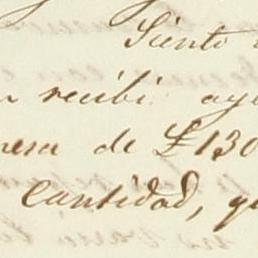 Siento
recibi ay
de £130
cantidad, q